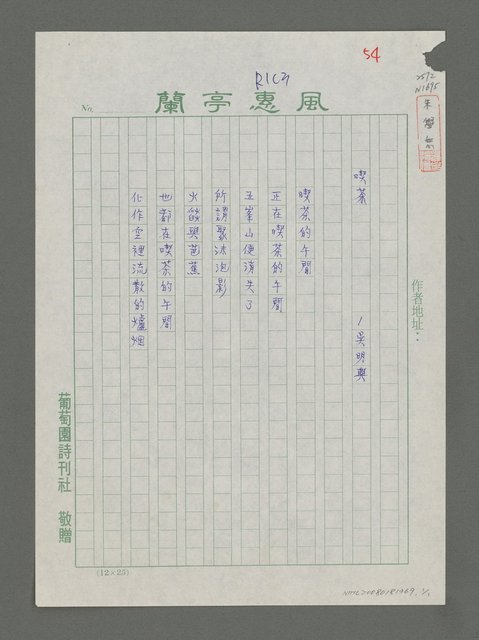 54
RIC3
No.
蘭亭惠風
2572
N1695
作者地址：
喫茶
/吳明興
喫茶的午間
正在喫茶的午間
五峯山便消失了
所謂聚沫泡影
火燄與芭蕉
也都在喫茶的午間
化作空裡流散的爐烟
葡萄園詩刊社 敬贈
(12×25)
NMTL20080181969, 1/1